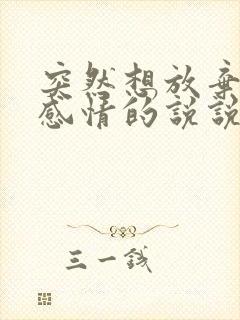 突然想放弃
感情的说说
三一钱